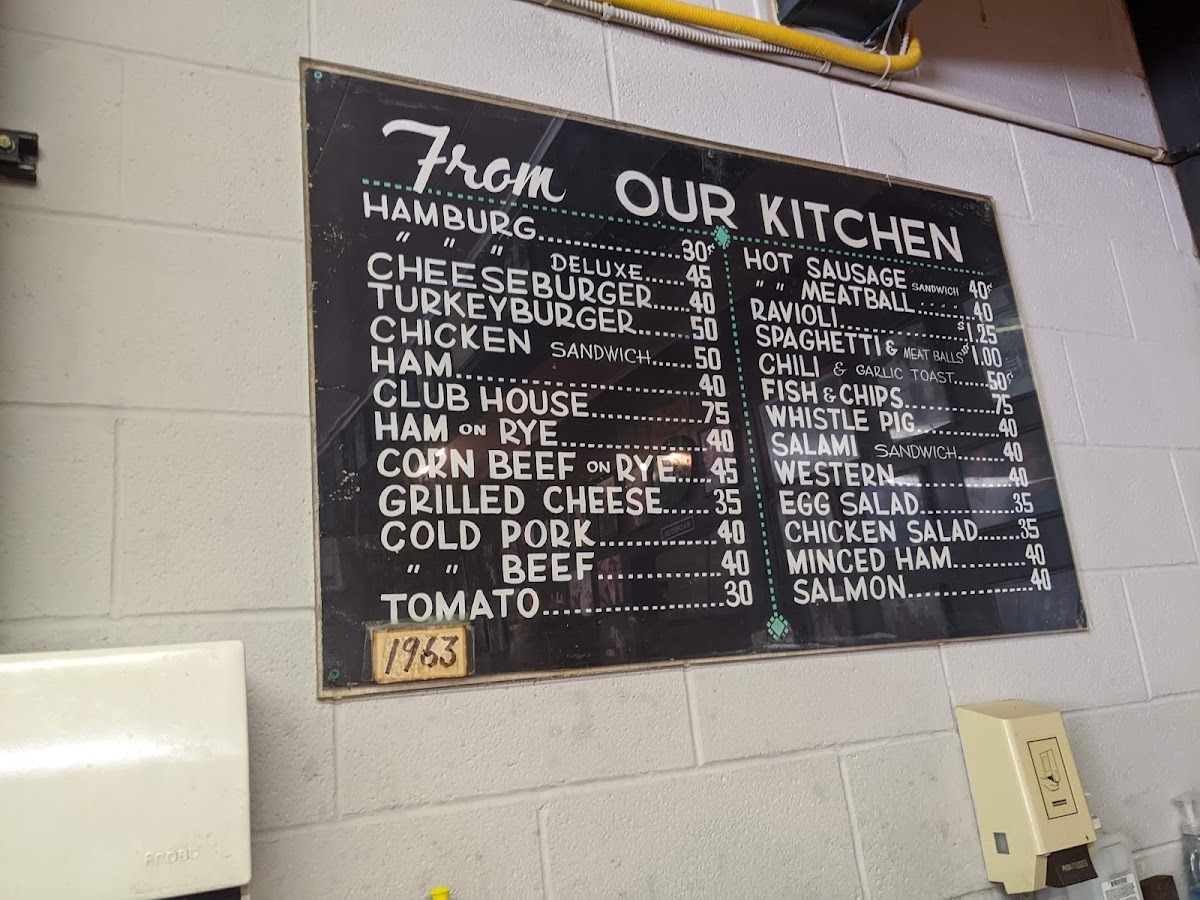 From OUR KITCHEN
HAMBURG..................30¢
" " " DELUXE.....45
CHEESEBURGER......40
TURKEYBURGER.......50
CHICKEN SANDWICH......50
HAM...............................40
CLUB HOUSE.................75
HAM ON RYE....................40
CORN BEEF ON RYE....45
GRILLED CHEESE......35
COLD PORK................40
" " BEEF................40
TOMATO........................30
1963
HOT SAUSAGE SANDWICH 40¢
" " MEATBALL .....40
RAVIOLI................$1.25
SPAGHETTI & MEAT BALLS $1.00
CHILI & GARLIC TOAST......50¢
FISH & CHIPS..............75
WHISTLE PIG..............40
SALAMI SANDWICH.......40
WESTERN.................40
EGG SALAD..............35
CHICKEN SALAD.......35
MINCED HAM............40
SALMON...................40